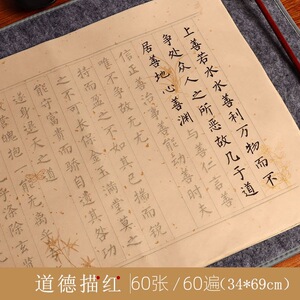 上善若水水善利万物而不
争处众人之所恶故几于道
居善地心善渊与善仁言善
信正善治事善能动善时夫
唯不争故无尤
持而盈之不如其已揣而锐
之不可长保金玉满堂莫
能守富贵而骄自遗其咎
遂身退天之道
道德描红 60张/60遍(34*69cm)